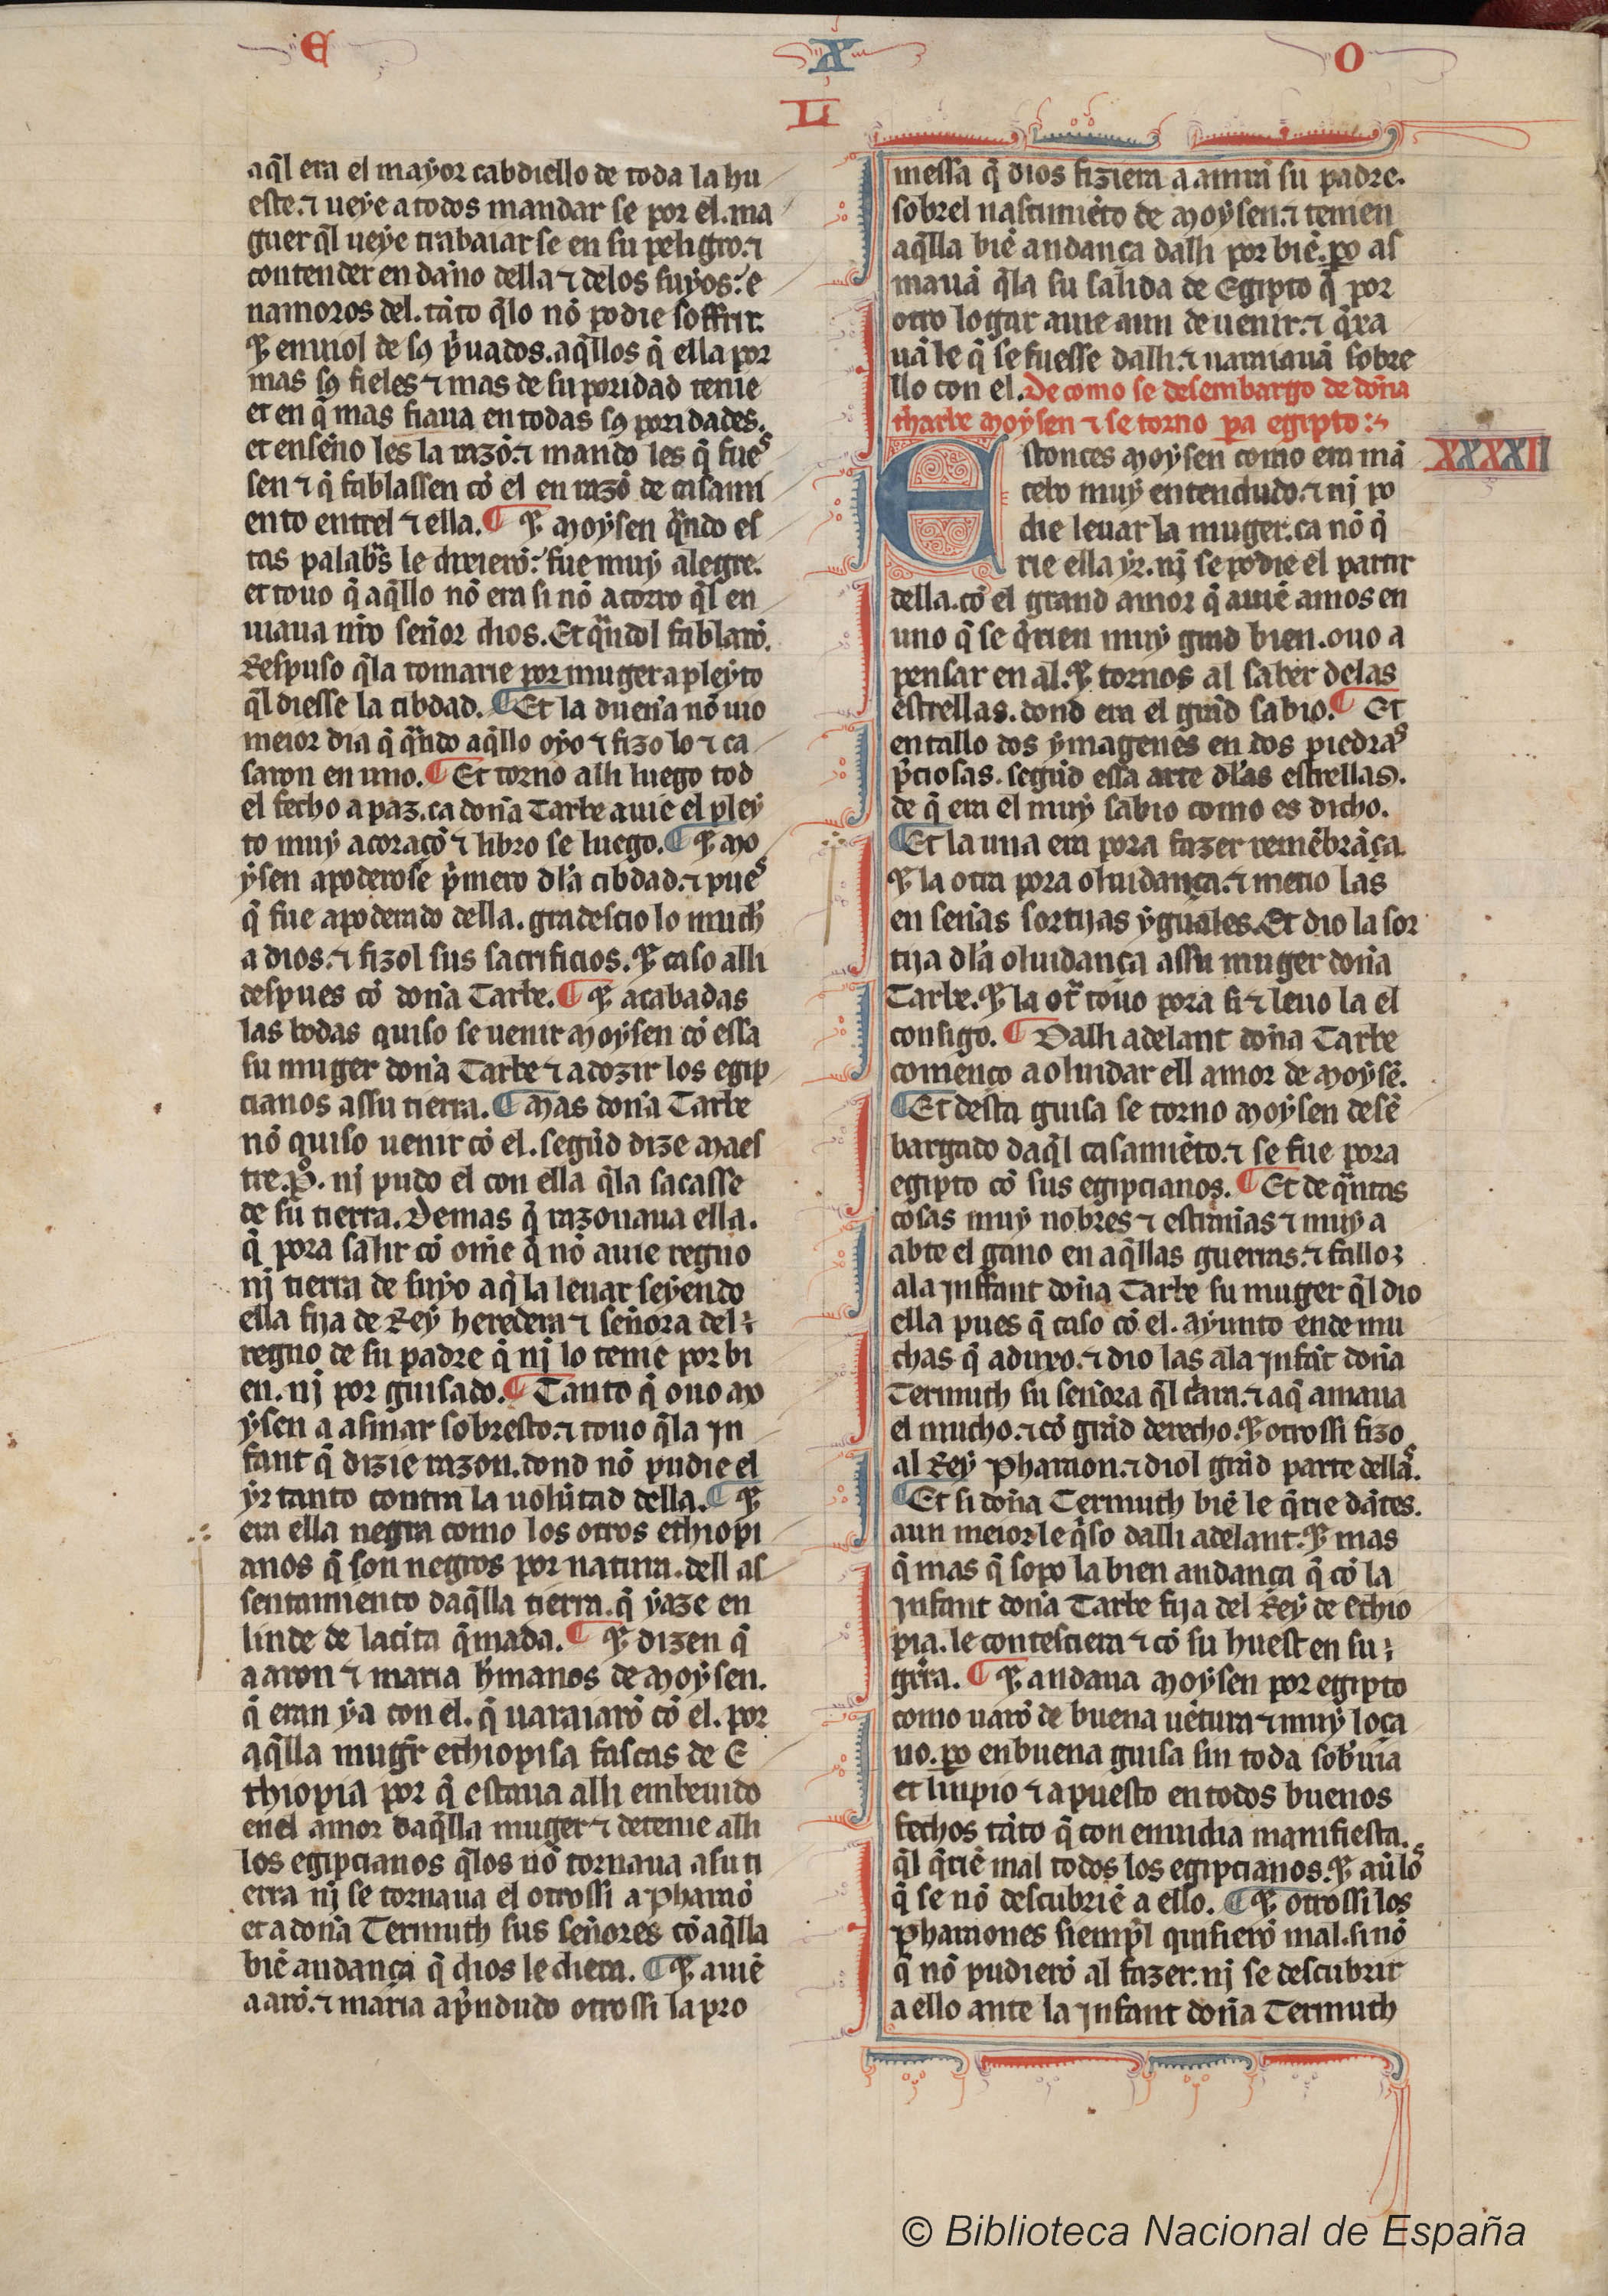 E X O
LI
aq̃l era el mayor cabdiello de toda la hu
este. ⁊ ueye a todos mandar se por el. ma
guer q̃l ueye trabaiar se en su peligro. ⁊
contender en danno della ⁊ delos suyos: e
namoros del. tãto q̃lo nõ podie soffrir.
⁊ enuiol de sꝯ p̃uados. aq̃llos q̃ ella por
mas sꝯ fieles ⁊ mas de su poridad tenie
et en q̃ mas fiaua en todas sꝯ poridades.
et enseño les la razõ. ⁊ mando les q̃ fues
sen ⁊ q̃ fablassen cõ el en razõ de casami
ento entrel ⁊ ella. ¶ ⁊ Moysen q̃ndo es
tas palabras le dixierõ: fue muy alegre.
et touo q̃ aq̃llo nõ era si nõ acorro q̃l en
uiaua nr̃o señor dios. Et q̃ndol fablarõ.
Respuso q̃la tomarie por muger a pleyto
q̃l diesse la cibdad. ¶ Et la dueña nõ uio
meior dia q̃ q̃ndo aq̃llo oyo ⁊ fizo lo ⁊ ca
saron en uno. ¶ Et torno alli luego tod
el fecho a paz. ca doña Tarbe auie el pley
to muy a coraçõ ⁊ libro se luego. ¶ ⁊ Mo
ysen apoderose p̃mero dla cibdad. ⁊ pues
q̃ fue apoderado della. gradescio lo much
a dios. ⁊ fizol sus sacrificios. ⁊ caso alli
despues cõ doña Tarbe. ¶ ⁊ acabadas
las bodas quiso se uenir Moysen cõ essa
su muger doña Tarbe ⁊ adozir los egip
cianos assu tierra. ¶ Mas doña Tarbe
nõ quiso uenir cõ el. segũd dize Maes
tre. P̊. nj pudo el con ella q̃la sacasse
de su tierra. Demas q̃ razonaua ella.
q̃ pora salir cõ ome q̃ nõ auie regno
nj tierra de suyo a q̃ la leuar seyendo
ella fija de Rey heredera ⁊ señora del
regno de su padre q̃ nj lo tenie por bi
en. nj por guisado. ¶ Tanto q̃ ouo Mo
ysen a asmar sobresto. ⁊ touo q̃la jn
fant q̃ dizie razon. dond nõ pudie el
yr tanto contra la uolũtad della. ¶ ⁊
era ella negra como los otros ethiopi
anos q̃ son negros por natura. dell as
sentamiento daq̃lla tierra. q̃ yaze en
linde de la cita q̃mada. ¶ ⁊ dizen q̃
aaron ⁊ maria hr̃manos de Moysen.
q̃ eran ya con el. q̃ uaraiarõ cõ el. por
aq̃lla mugr̃ ethiopisa fascas de E
thiopia por q̃ estaua alli embeuido
enel amor daq̃lla muger ⁊ detenie alli
los egipcianos q̃los nõ tornaua a su ti
erra nj se tornaua el otrossi a Pharaõ
et a doña Termuth sus señores cõ aq̃lla
biẽ andança q̃ dios le diera. ¶ ⁊ auiẽ
aarõ. ⁊ maria ap̃ndudo otrossi la pro
messa q̃ dios fiziera a amrã su padre.
sobrel nascimiẽto de Moysen. ⁊ temien
aq̃lla biẽ andança dalli por biẽ. ꝑo as
mauã q̃la su salida de Egipto q̃ por
otro logar auie aun de uenir. ⁊ q̃xa
uã le q̃ se fuesse dalli. ⁊ uaraiauã sobre
llo con el. De como se desembargo de doña
tharbe Moysen ⁊ se torno pa egipto:
XXXXII
Estonces Moysen como era mã
cebo muy entendudo. ⁊ nj po
die leuar la muger. ca nõ q̃
rie ella yr. nj se podie el partir
della. cõ el grand amor q̃ auiẽ amos en
uno q̃ se q̃rien muy grãd bien. ouo a
pensar en al. ⁊ tornos al saber delas
estrellas. dond era el grãd sabio. ¶ Et
entallo dos ymagenes en dos piedras
p̃ciosas. segũd essa arte dlas estrellas.
de q̃ era el muy sabio como es dicho.
¶ Et la una era pora fazer remẽbrãça
⁊ la otra pora oluidança. ⁊ metio las
en señas sortijas yguales. Et dio la sor
tija dla oluidança assu muger doña
Tarbe. ⁊ la otr̃ touo pora si ⁊ leuo la el
consigo. ¶ Dalli adelant doña Tarbe
començo a oluidar ell amor de Moysẽ.
¶ Et desta guisa se torno Moysen desẽ
bargado daq̃l casamiẽto. ⁊ se fue pora
egipto cõ sus egipcianos. ¶ Et de q̃ntas
cosas muy nobres ⁊ estrañas ⁊ muy a
abte el gano en aq̃llas guerras. ⁊ fallo ⁊
ala jnffant doña Tarbe su muger q̃l dio
ella pues q̃ caso cõ el. ayunto ende mu
chas q̃ aduxo. ⁊ dio las ala jnfãt doña
Termuth su señora q̃l c̃ara. ⁊ a q̃ amaua
el mucho. ⁊ cõ grãd derecho. ⁊ otrossi fizo
al Rey Pharaon. ⁊ diol grãd parte dellas.
¶ Et si doña Termuth biẽ le q̃rie dãtes.
aun meior le q̃so dalli adelant. ⁊ mas
q̃ mas q̃ sopo la bien andança q̃ cõ la
jnfant doña Tarbe fija del Rey de Ethio
pia. le contesciera ⁊ cõ su huest en su
gr̃ra. ¶ ⁊ andaua Moysen por egipto
como uarõ de buena uẽtura ⁊ muy loça
no. ꝑo en buena guisa sin toda sob̃uia
et limpio ⁊ apuesto en todos buenos
fechos tãto q̃ con enuidia manifiesta.
q̃l q̃riẽ mal todos los egipcianos. ⁊
q̃ se nõ descubriẽ a ello. ¶ ⁊ otrossi los
Pharaones siemp̃l quisierõ mal. si nõ
q̃ nõ pudierõ al fazer. nj se descubrir
a ello ante la jnfant doña Termuth
© Biblioteca Nacional de España